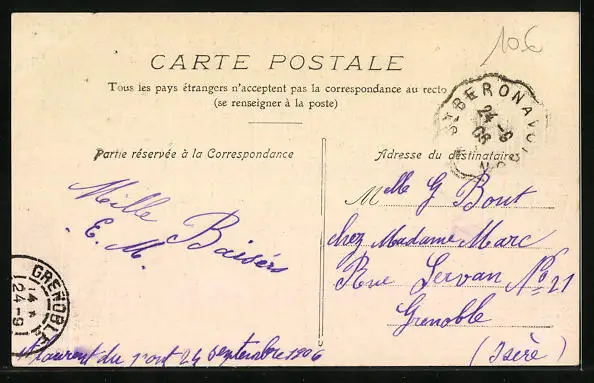 10€
CARTE POSTALE
Tous les pays étrangers n'acceptent pas la correspondance au recto
(se renseigner à la poste)
Partie réservée à la Correspondance
Mille Baisers
E. M.
Adresse du destinataire
Mlle G Bout
chez Madame Marc
Rue Servan No 21
Grenoble
(Isère)
St BERON A VOI
24 -9
06
GRENOBLE
24-9
St Laurent du pont 24 septembre 1906